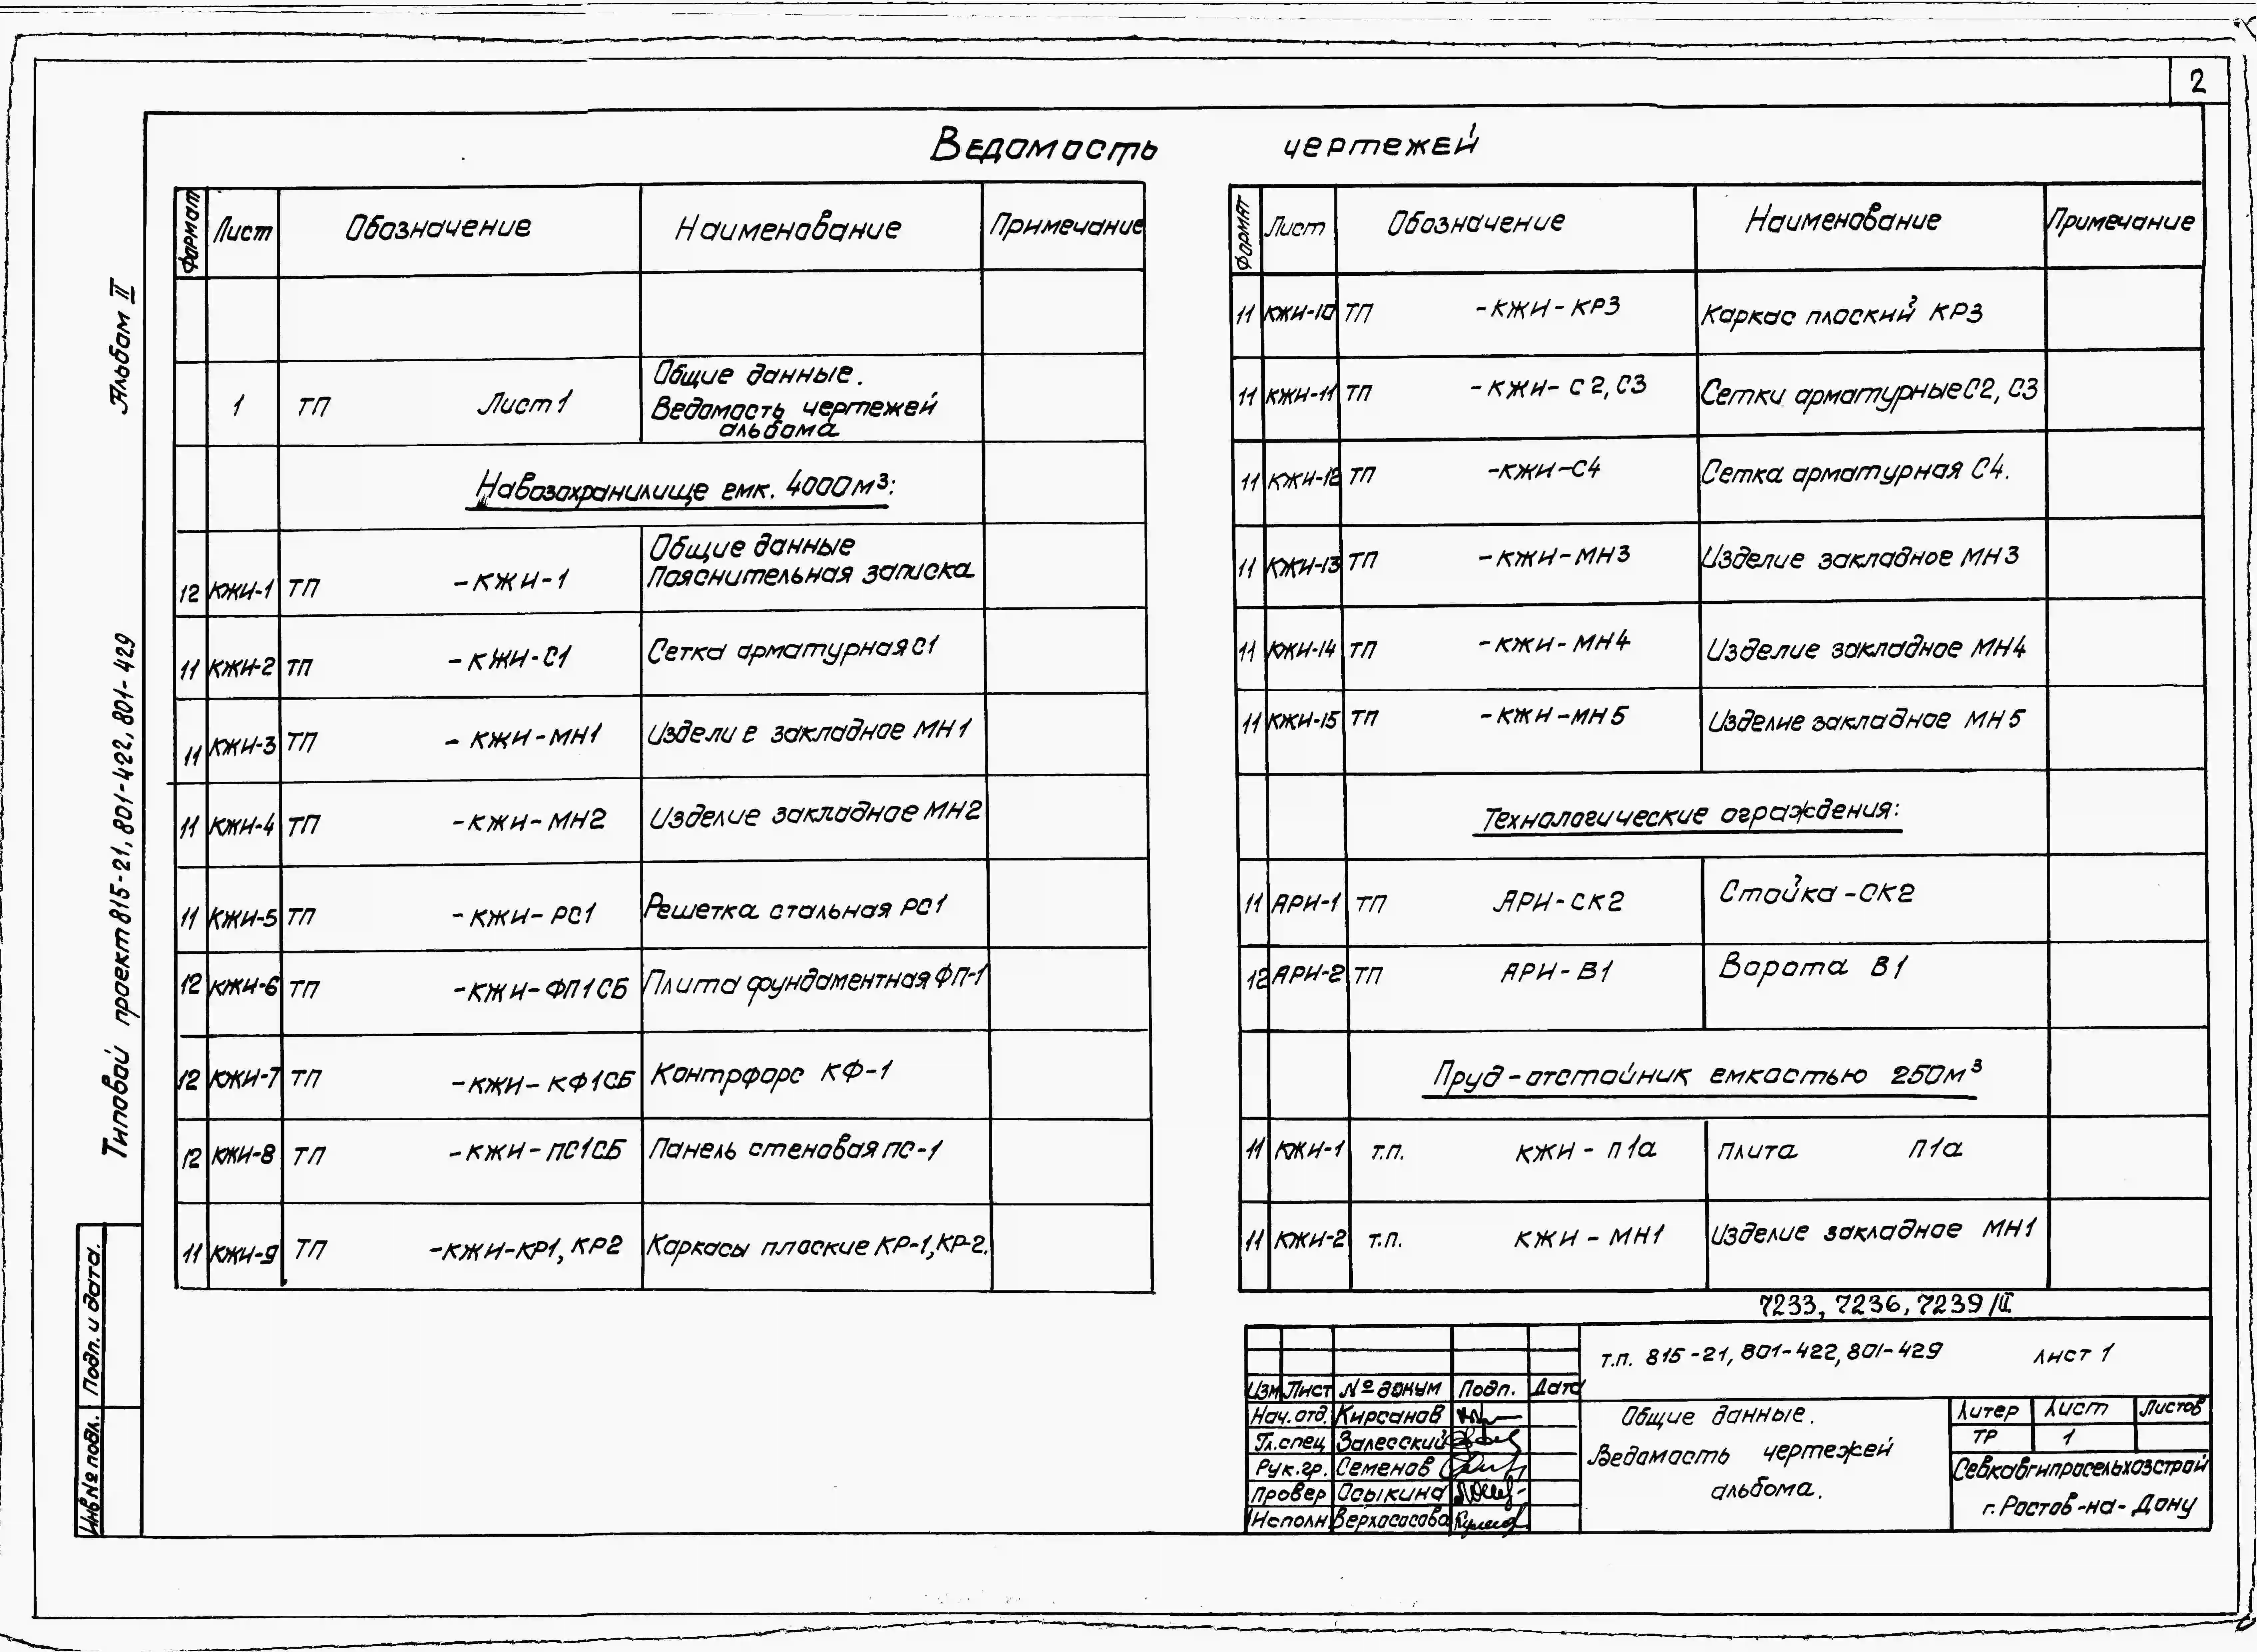 2
Ведомость чертежей
Альбом II
Типовой проект 815-21, 801-422, 801-429
Инв№ подл. Подп. и дата.
Формат Лист Обозначение Наименование Примечание
1 ТП Лист 1 Общие данные.
Ведомость чертежей
альбома
Навозохранилище емк. 4000м³:
12 КЖИ-1 ТП -КЖИ-1 Общие данные
Пояснительная записка
11 КЖИ-2 ТП -КЖИ-С1 Сетка арматурная С1
11 КЖИ-3 ТП -КЖИ-МН1 Изделие закладное МН1
11 КЖИ-4 ТП -КЖИ-МН2 Изделие закладное МН2
11 КЖИ-5 ТП -КЖИ-РС1 Решетка стальная РС1
12 КЖИ-6 ТП -КЖИ-ФП1СБ Плита фундаментная ФП-1
12 КЖИ-7 ТП -КЖИ-КФ1СБ Контрфорс КФ-1
12 КЖИ-8 ТП -КЖИ-ПС1СБ Панель стеновая ПС-1
11 КЖИ-9 ТП -КЖИ-КР1, КР2 Каркасы плоские КР-1, КР-2.
Формат Лист Обозначение Наименование Примечание
11 КЖИ-10 ТП -КЖИ-КР3 Каркас плоский КР3
11 КЖИ-11 ТП -КЖИ-С2, С3 Сетки арматурные С2, С3
11 КЖИ-12 ТП -КЖИ-С4 Сетка арматурная С4.
11 КЖИ-13 ТП -КЖИ-МН3 Изделие закладное МН3
11 КЖИ-14 ТП -КЖИ-МН4 Изделие закладное МН4
11 КЖИ-15 ТП -КЖИ-МН5 Изделие закладное МН5
Технологические ограждения:
11 АРИ-1 ТП АРИ-СК2 Стойка -СК2
12 АРИ-2 ТП АРИ-В1 Ворота В1
Пруд-отстойник емкостью 250м³
11 КЖИ-1 т.п. КЖИ-П1а Плита П1а
11 КЖИ-2 т.п. КЖИ-МН1 Изделие закладное МН1
7233, 7236, 7239/II
т.п. 815-21, 801-422, 801-429 лист 1
Изм Лист № докум Подп. Дата
Нач.отд. Кирсанов
Гл.спец Залесский
Рук.гр. Семенов
Провер Осыкина
Исполн. Верхососова
Общие данные.
Ведомость чертежей
альбома.
Литер Лист Листов
ТР 1
Севкавгипросельхозстрой
г. Ростов-на-Дону